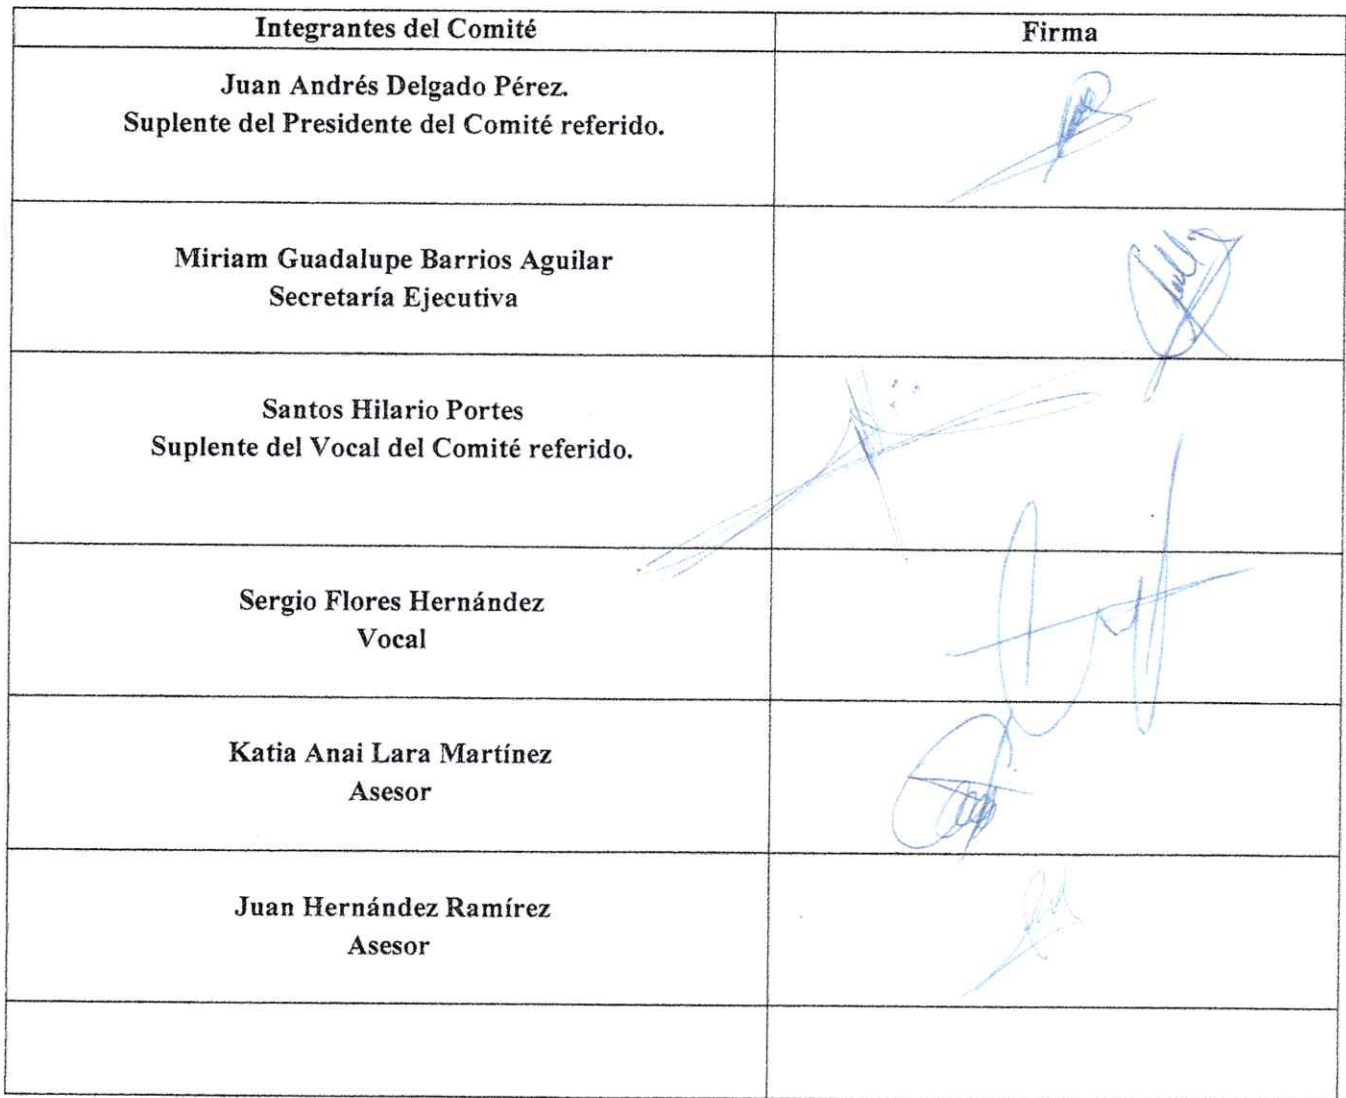 Integrantes del Comité
Firma
Juan Andrés Delgado Pérez.
Suplente del Presidente del Comité referido.
Miriam Guadalupe Barrios Aguilar
Secretaría Ejecutiva
Santos Hilario Portes
Suplente del Vocal del Comité referido.
Sergio Flores Hernández
Vocal
Katia Anai Lara Martínez
Asesor
Juan Hernández Ramírez
Asesor